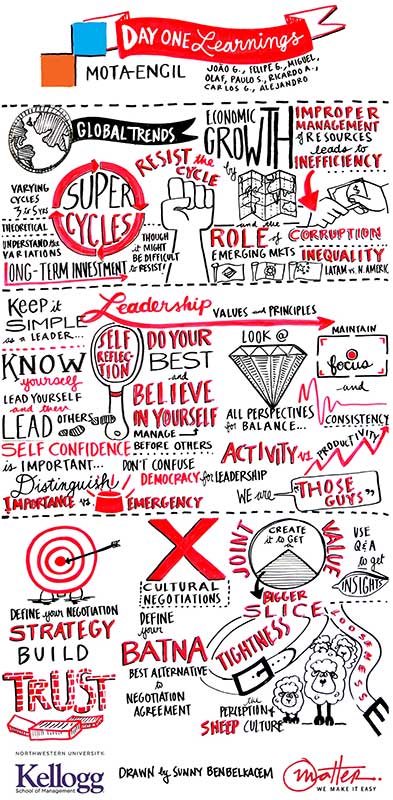 DAY ONE Learnings
MOTA-ENGIL
JOÃO G., FELIPE G., MIGUEL,
OLAF, PAULO S., RICARDO A.,
CARLOS G., ALEJANDRO
GLOBAL TRENDS
VARYING
CYCLES
3 to 5 YRS
THEORETICAL
UNDERSTAND the
VARIATIONS
LONG-TERM INVESTMENT
SUPER
CYCLES
RESIST the
CYCLE
THOUGH
it MIGHT
BE DIFFICULT
to RESIST!
ECONOMIC
GROWTH
by
IMPROPER
MANAGEMENT
of RESOURCES
leads to
INEFFICIENCY
and the
ROLE of CORRUPTION
EMERGING MKTS
INEQUALITY
LATAM vs. N. AMERIC
Leadership VALUES and PRINCIPLES
Keep it
SIMPLE
as a LEADER...
KNOW
yourself
LEAD YOURSELF
and then
LEAD OTHERS
SELF
REFLEC-
TION
DO YOUR
BEST
and
BELIEVE
IN YOURSELF
MANAGE
BEFORE OTHERS
SELF CONFIDENCE
is IMPORTANT...
Distinguish!
IMPORTANCE vs. EMERGENCY
DON'T CONFUSE
DEMOCRACY for LEADERSHIP
LOOK @
ALL PERSPECTIVES
for BALANCE...
MAINTAIN
focus
and
CONSISTENCY
ACTIVITY vs. PRODUCTIVITY
WE are "THOSE
GUYS"
DEFINE your NEGOTIATION
STRATEGY
BUILD
TRUST
X
CULTURAL
NEGOTIATIONS
DEFINE
your
BATNA
BEST ALTERNATIVE
to
NEGOTIATION
AGREEMENT
JOINT
VALUE
CREATE
it to GET
a
BIGGER
SLICE
USE
Q&A
to get
INSIGHTS
TIGHTNESS
LOOSENESS
the
PERCEPTION of
SHEEP CULTURE
NORTHWESTERN UNIVERSITY
Kellogg
School of Management
DRAWN by SUNNY BENBELKACEM
matter.
WE MAKE IT EASY